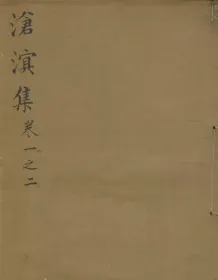 滄溟集卷一之二